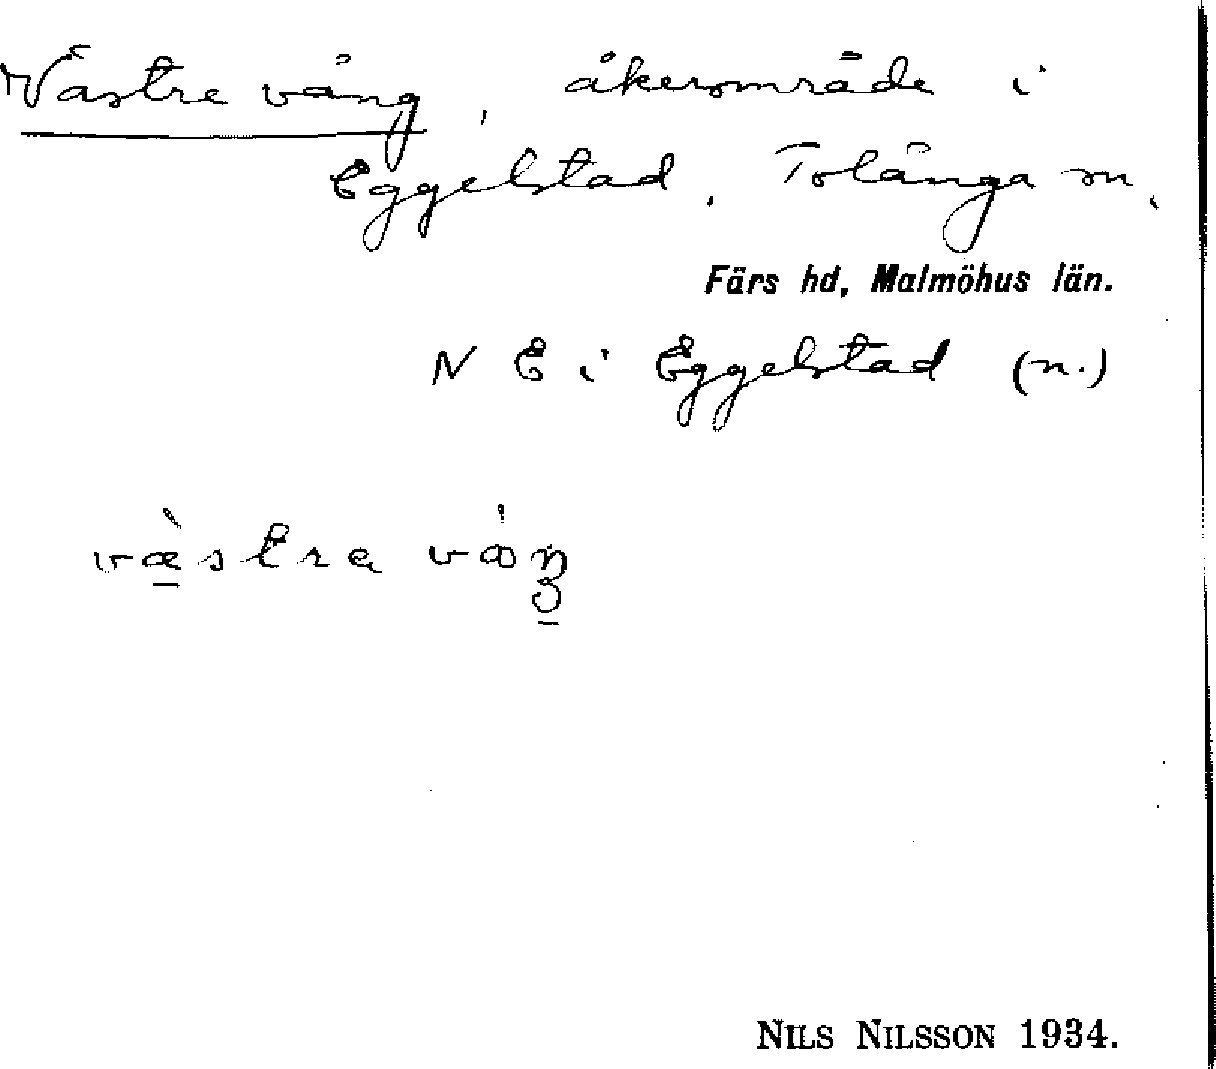 Västre vång, åkerområde i
Eggelstad, Tolånga sn,
Färs hd, Malmöhus län.
N E i Eggelstad (n.)
væ̀stra våŋ
NILS NILSSON 1934.